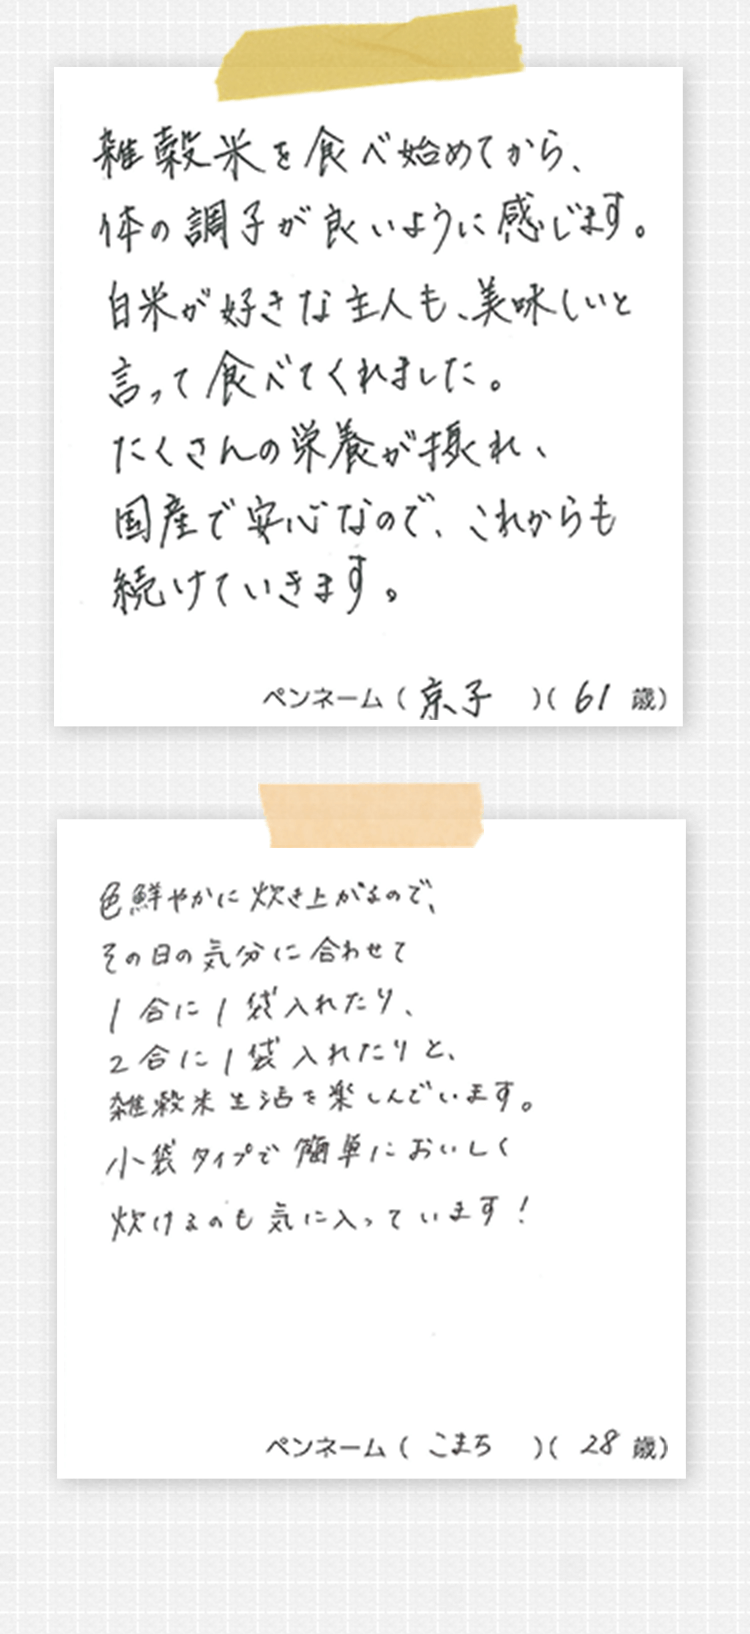 雑穀米を食べ始めてから、
体の調子が良いように感じます。
白米が好きな主人も、美味しいと
言って食べてくれました。
たくさんの栄養が摂れ、
国産で安心なので、これからも
続けていきます。
ペンネーム（京子　）（61歳）
色鮮やかに炊き上がるので、
その日の気分に合わせて
1合に1袋入れたり、
2合に1袋入れたりと、
雑穀米生活を楽しんでいます。
小袋タイプで簡単においしく
炊けるのも気に入っています！
ペンネーム（こまち　）（28歳）